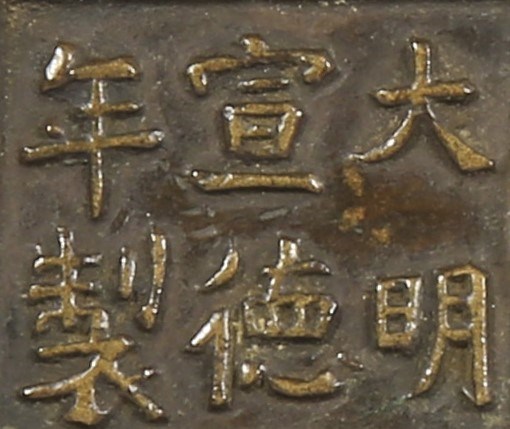 大明
宣德
年製